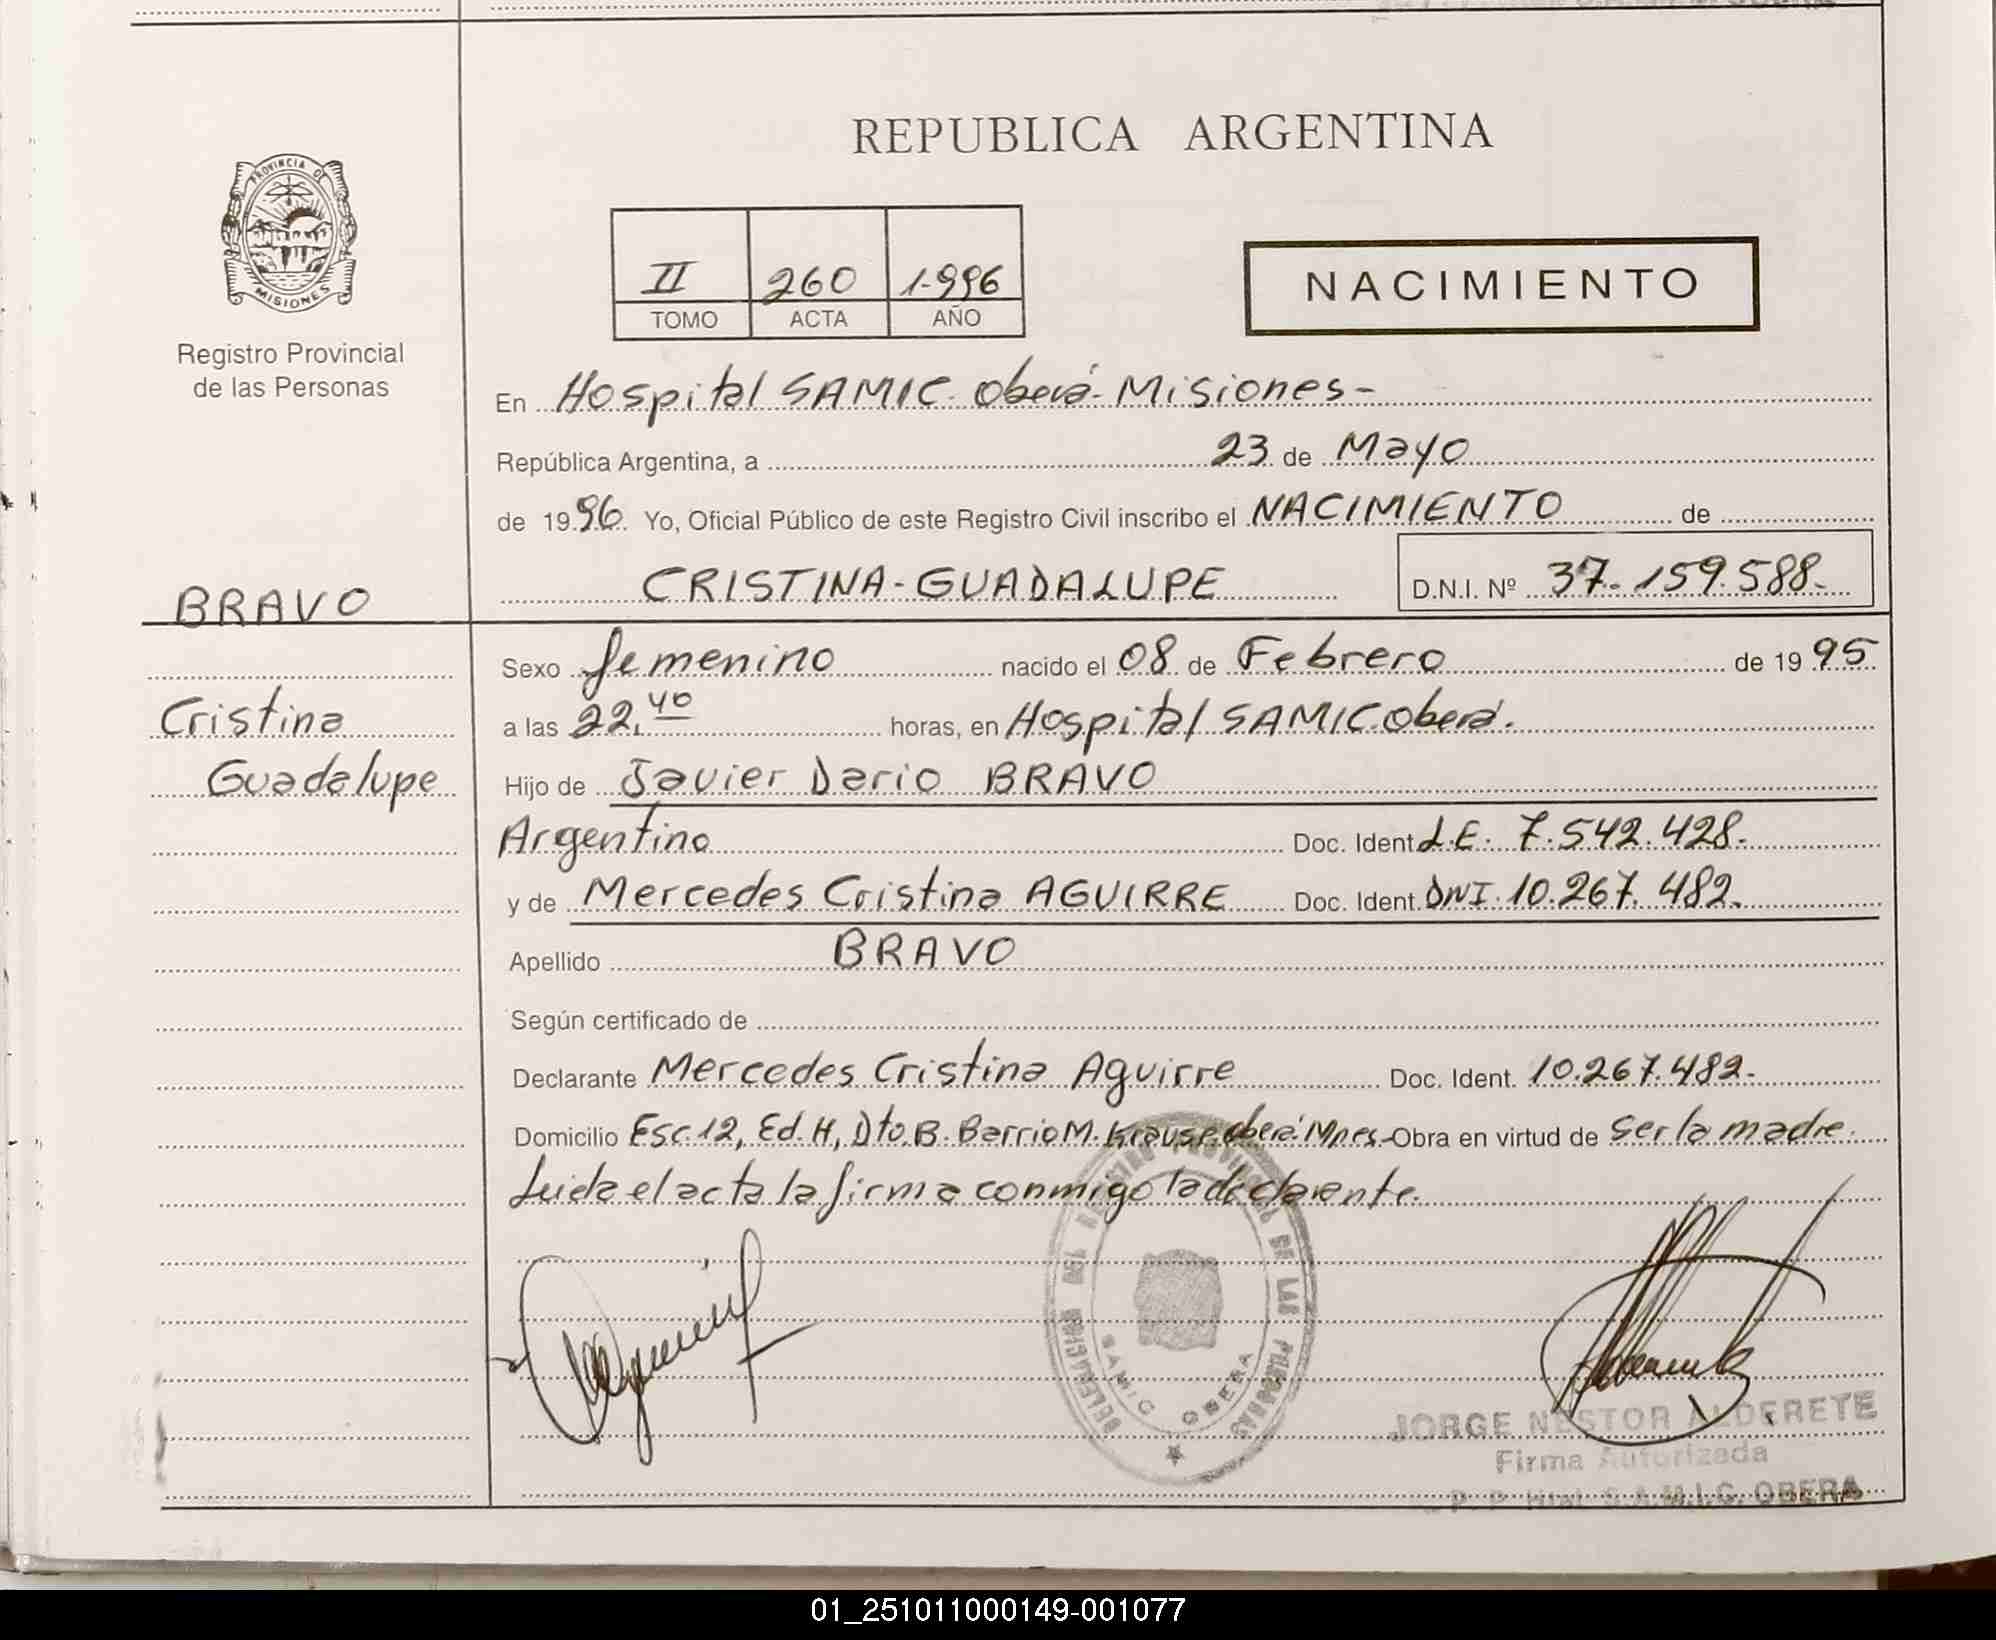 REPUBLICA ARGENTINA
PROVINCIA DE
MISIONES
Registro Provincial
de las Personas
II 260 1.996
TOMO ACTA AÑO
NACIMIENTO
En Hospital SAMIC. Oberá-Misiones-
República Argentina, a 23 de Mayo
de 1996. Yo, Oficial Público de este Registro Civil inscribo el NACIMIENTO de
BRAVO
CRISTINA-GUADALUPE D.N.I. Nº 37.159.588.
Sexo femenino nacido el 08 de Febrero de 1995
Cristina
a las 22,40 horas, en Hospital SAMIC.Oberá.
Guadalupe
Hijo de Javier Dario BRAVO
Argentino Doc. Ident L.E. 7.542.428.
y de Mercedes Cristina AGUIRRE Doc. Ident. DNI.10.267.482.
Apellido BRAVO
Según certificado de
Declarante Mercedes Cristina Aguirre Doc. Ident. 10.267.482.
Domicilio Esc.12, Ed.H, Dto.B. Barrio M. Krause.Oberá.Mnes.-Obra en virtud de ser la madre.
Leida el acta la firma conmigo la declarante.
DELEGACION DEL REGISTRO PROVINCIAL DE LAS PERSONAS
SAMIC OBERA
JORGE NESTOR ALDERETE
Firma Autorizada
S.A.M.I.C. OBERA
01_251011000149-001077